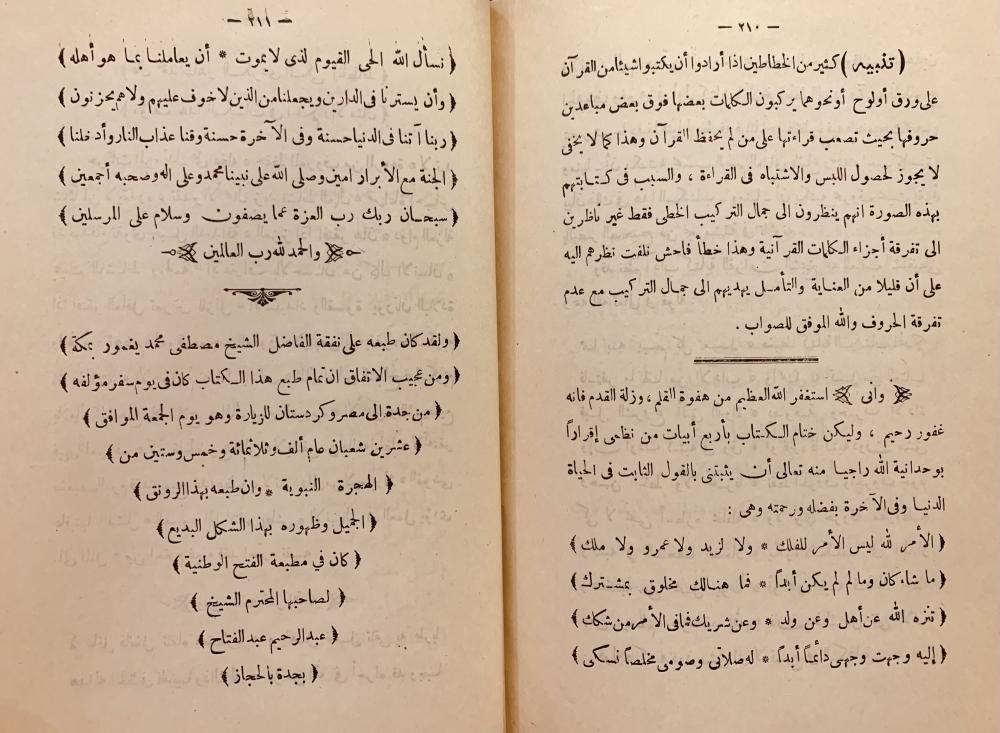 — ٢١٠ —
( تنبيه ) كثير من الخطاطين اذا أرادوا أن يكتبوا شيئا من القرآن
على ورق أو لوح أو نحوهما يركبون الكلمات بعضها فوق بعض مباعدين
حروفها بحيث تصعب قراءتها على من لم يحفظ القرآن وهذا كما لا يخفى
لا يجوز لحصول اللبس والاشتباه فى القراءة ، والسبب فى كتابتهم
بهذه الصورة انهم ينظرون الى جمال التركيب الخطى فقط غير ناظرين
الى تفرقة أجزاء الكلمات القرآنية وهذا خطأ فاحش نلفت نظرهم اليه
على أن قليلا من العناية والتأمل يهديهم الى جمال التركيب مع عدم
تفرقة الحروف والله الموفق للصواب .
وانى استغفر الله العظيم من هفوة القلم ، وزلة القدم فانه
غفور رحيم ، وليكن ختام الكتاب بأربع أبيات من نظمى إقراراً
بوحدانية الله راجيا منه تعالى أن يثبتنى بالقول الثابت فى الحياة
الدنيا وفى الآخرة بفضله ورحمته وهى :
( الأمر لله ليس الأمر للفلك * ولا لزيد ولا عمرو ولا ملك )
( ما شاء كان وما لم لم يكن أبداً * فما هنالك مخلوق بمشترك )
( تنزه الله عن أهل وعن ولد * وعن شريك فما فى الأمر من شكك )
( إليه وجهت وجهى دائماً أبداً * له صلاتى وصومى مخلصاً نسكى )
— ٢١١ —
( نسأل الله الحى القيوم لذى لا يموت * أن يعاملنا بما هو أهله )
( وأن يسترنا فى الدارين ويجعلنا من الذين لا خوف عليهم ولا هم يحزنون )
( ربنا آتنا فى الدنيا حسنة وفى الآخرة حسنة وقنا عذاب النار وأدخلنا )
( الجنة مع الأبرار امين وصلى الله على نبينا محمد وعلى اله وصحبه أجمعين )
( سبحان ربك رب العزة عما يصفون وسلام على المرسلين )
والحمد لله رب العالمين
( ولقد كان طبعه على نفقة الفاضل الشيخ مصطفى محمد يغمور بمكة )
( ومن عجيب الاتفاق ان تمام طبع هذا الكتاب كان فى يوم سفر مؤلفه )
( من جدة الى مصر وكردستان للزيارة وهو يوم الجمعة الموافق )
( عشرين شعبان عام ألف وثلاثمائة وخمس وستين من )
( الهجرة النبوية * وان طبعه بهذا الرونق )
( الجميل وظهوره بهذا الشكل البديع )
( كان في مطبعة الفتح الوطنية )
( لصاحبها المحترم الشيخ )
( عبد الرحيم عبد الفتاح )
( بجدة بالحجاز )